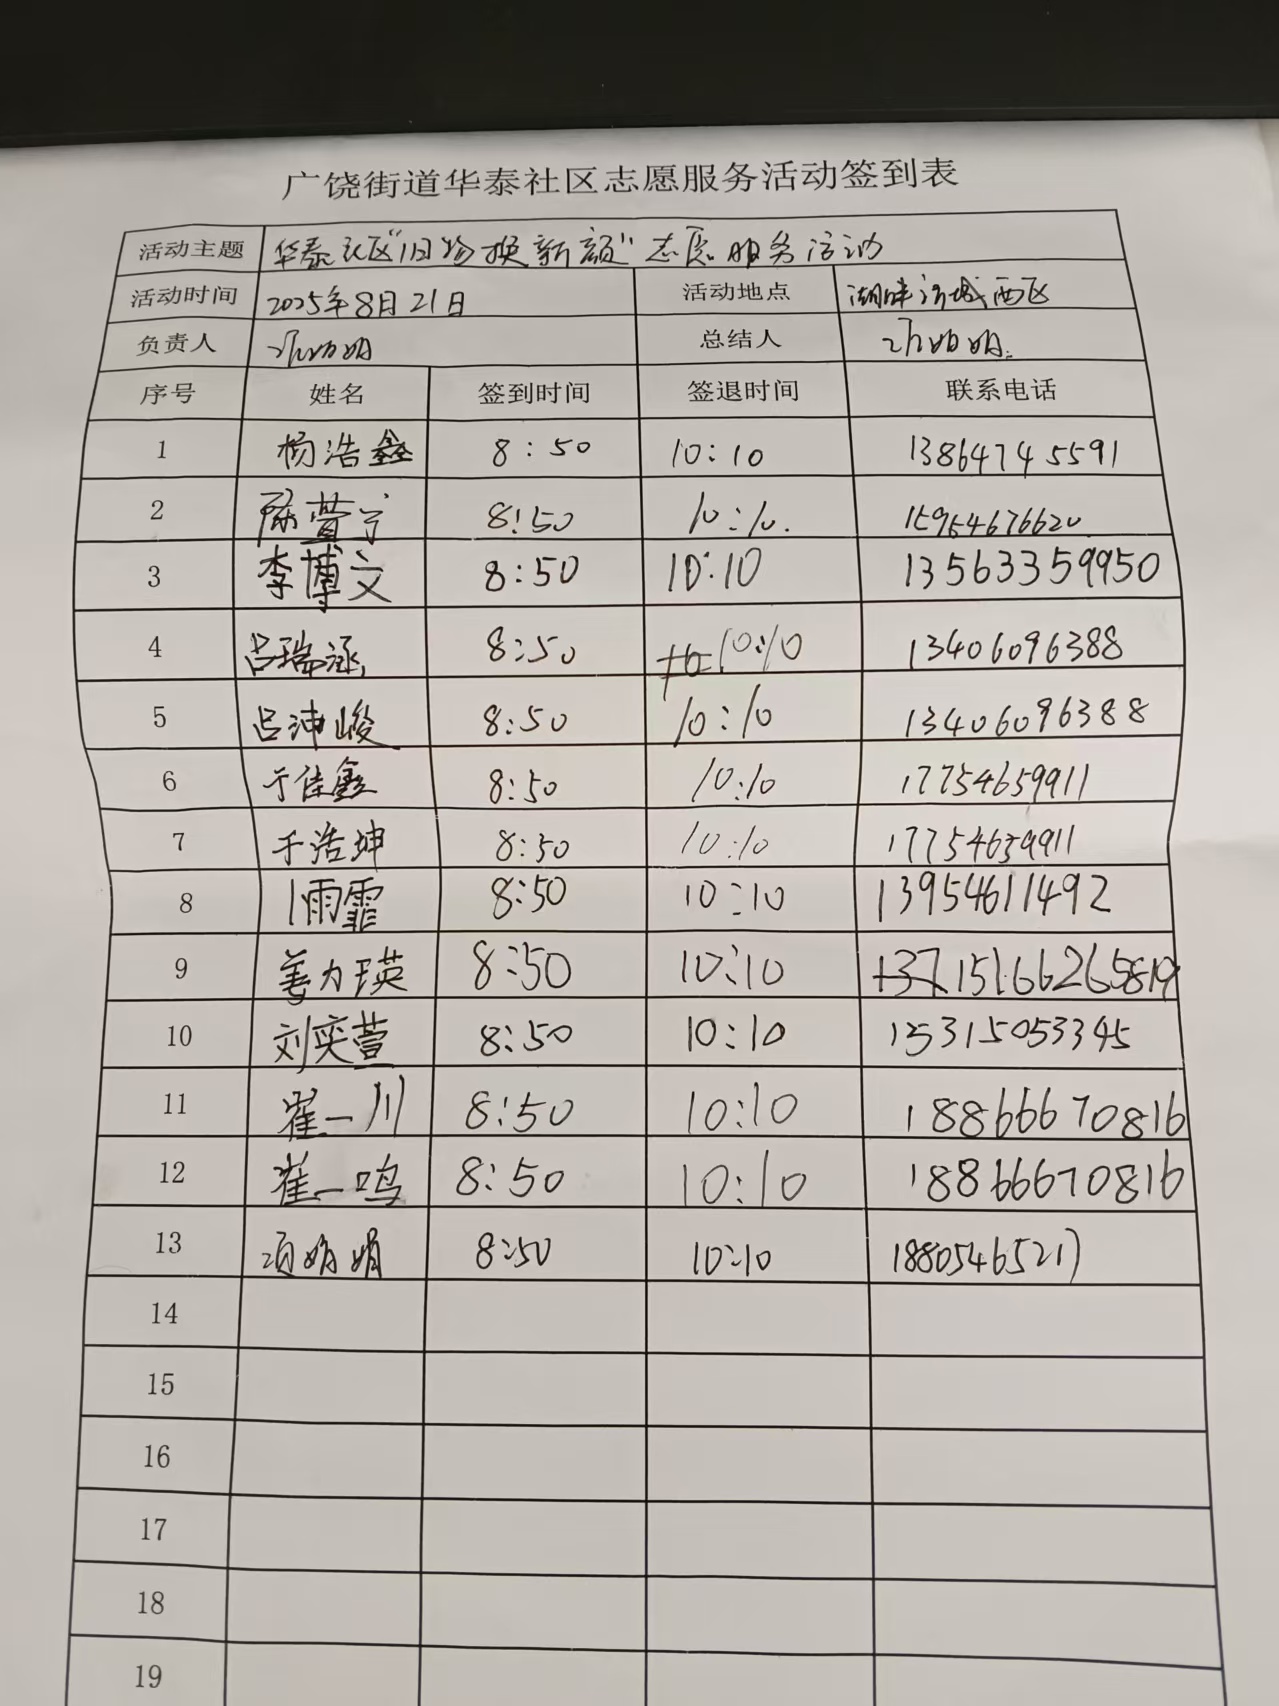 广饶街道华泰社区志愿服务活动签到表
活动主题 华泰社区“旧物换新颜”志愿服务活动
活动时间 2025年8月21日 活动地点 湖畔 城西区
负责人 项娟娟 总结人 项娟娟
序号 姓名 签到时间 签退时间 联系电话
1 杨浩鑫 8:50 10:10 13864745591
2 萱宁 8:50 10:10. 15954676620
3 李博文 8:50 10:10 13563359950
4 吕瑞涵 8:50 10:10 13406096388
5 吕沛峻 8:50 10:10 13406096388
6 于佳鑫 8:50 10:10 17754659911
7 于浩坤 8:50 10:10 17754659911
8 雨霏 8:50 10:10 13954611492
9 姜力瑛 8:50 10:10 15166265819
10 刘奕萱 8:50 10:10 15315053345
11 崔一川 8:50 10:10 18866670816
12 崔一鸣 8:50 10:10 18866670816
13 项娟娟 8:50 10:10 18805465217
14
15
16
17
18
19